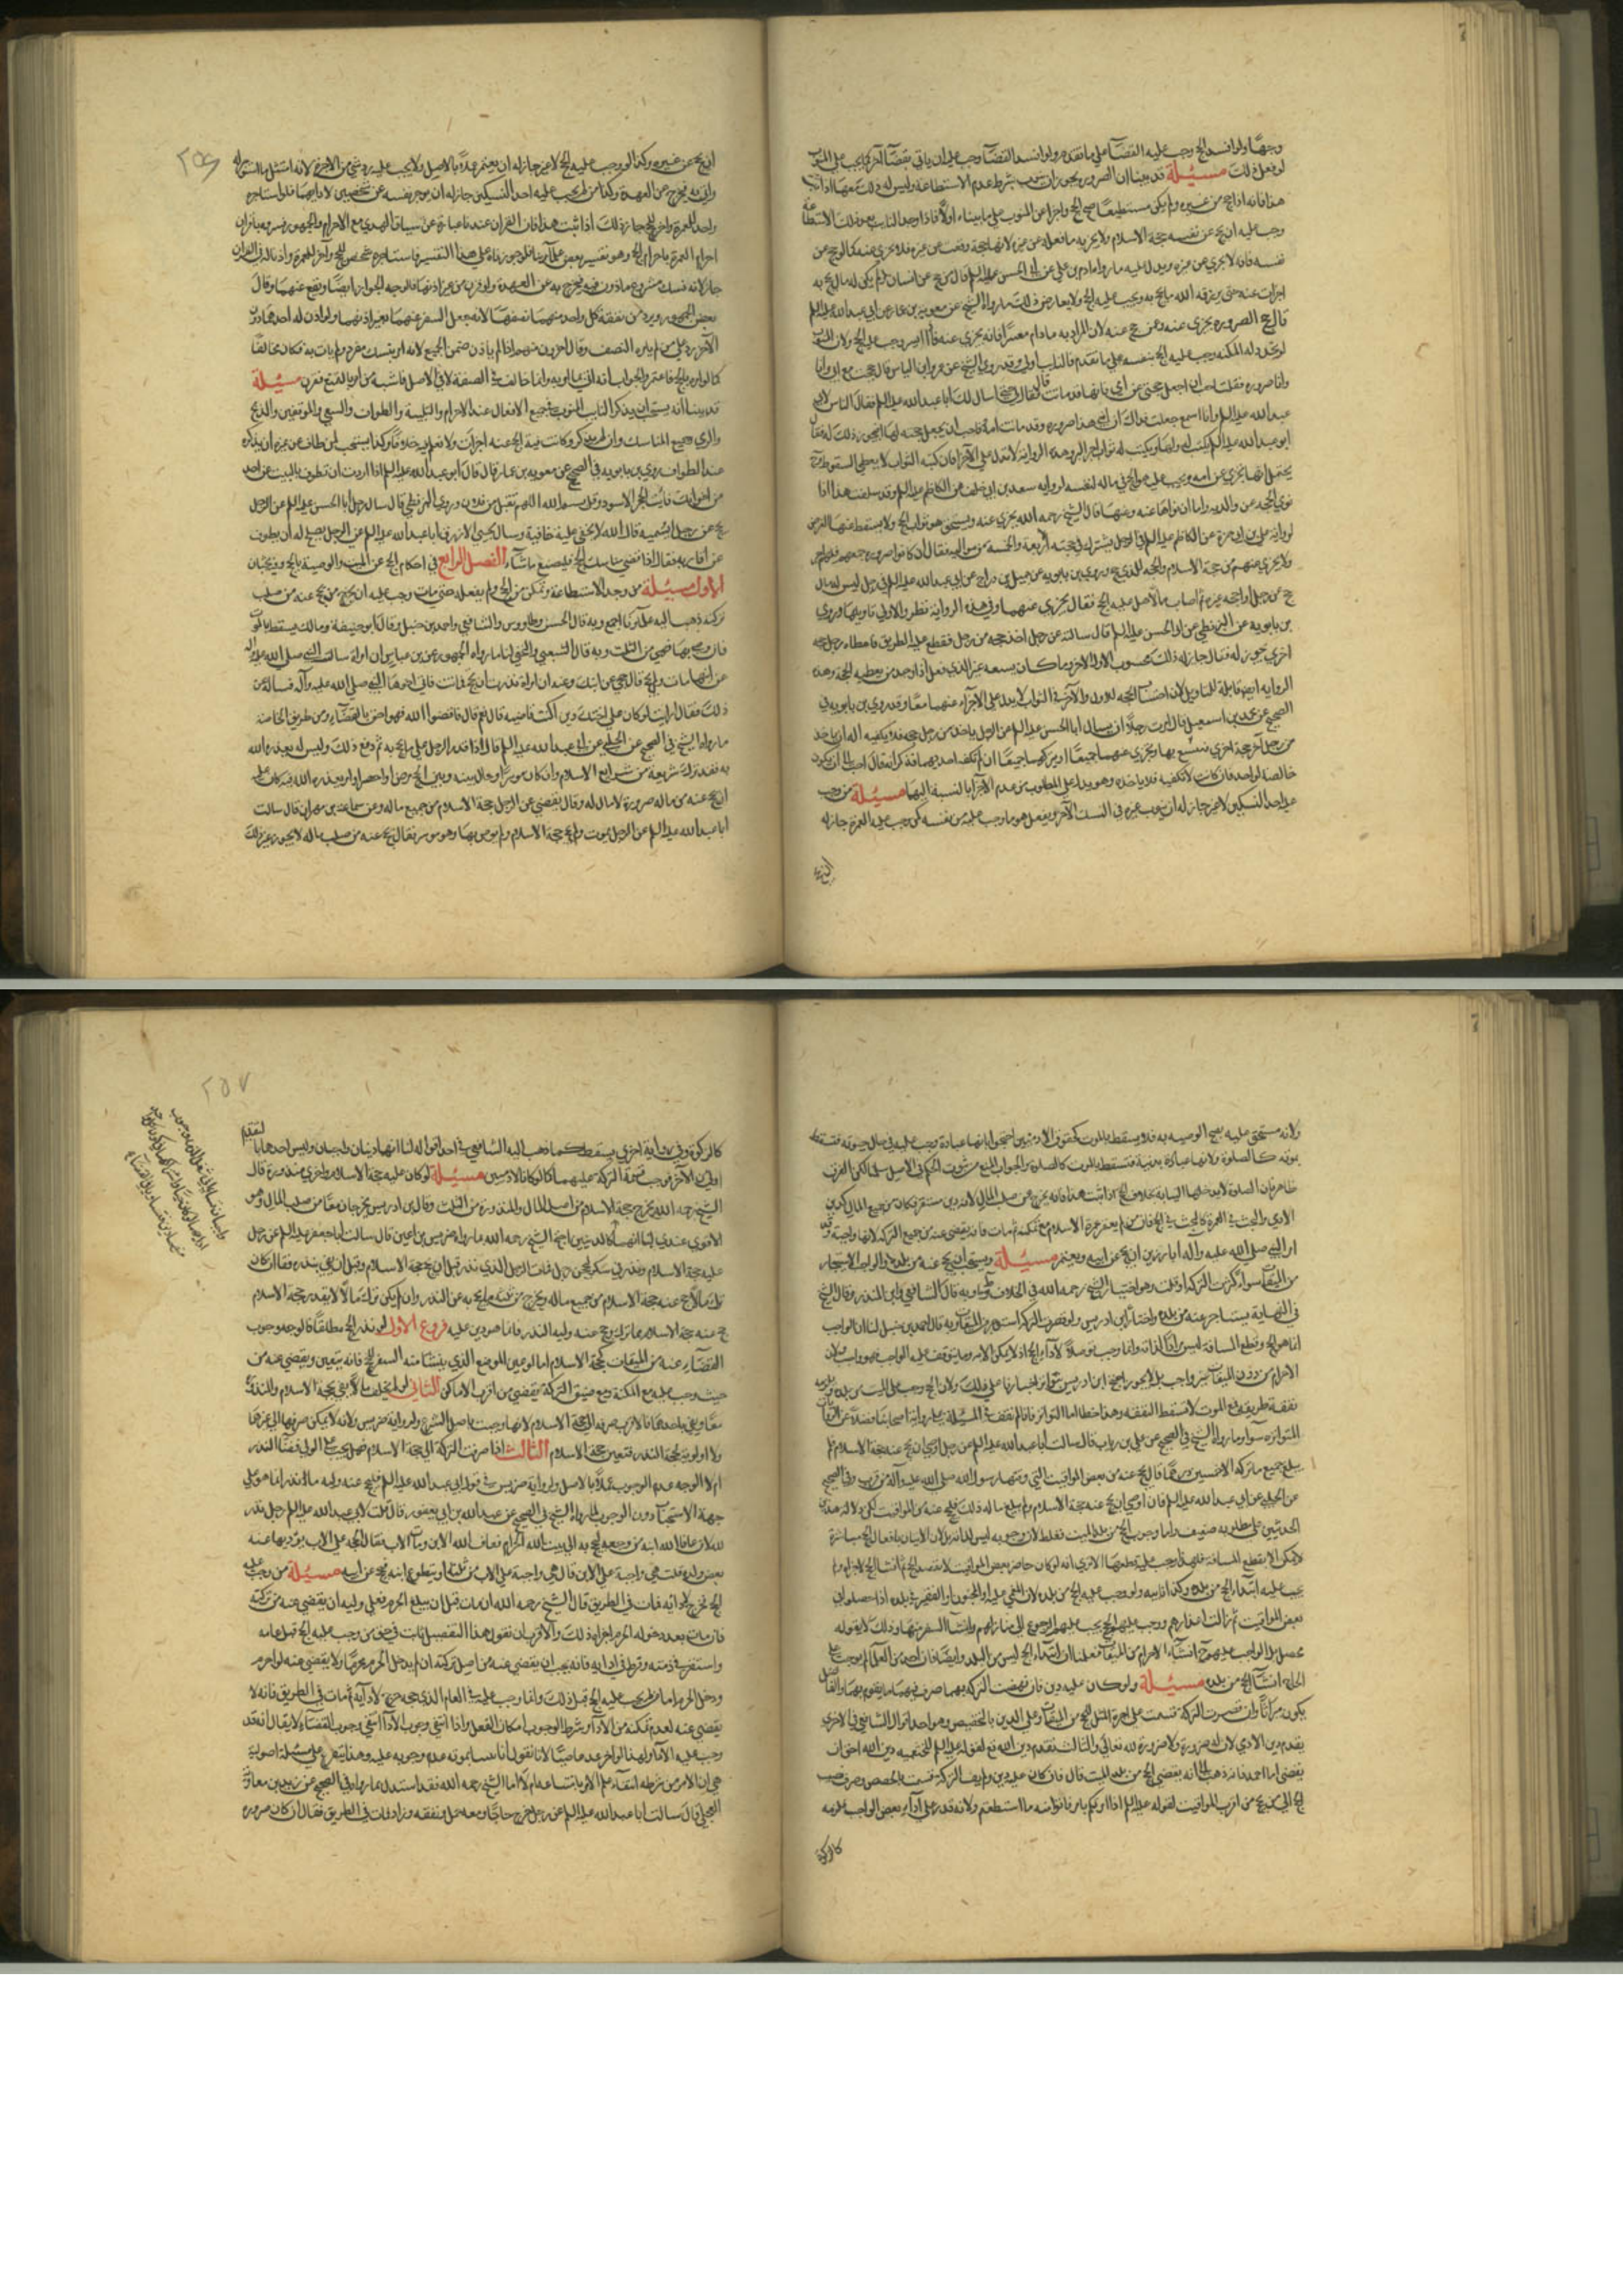 وجهًا ولو افسد الحج وجب عليه القضآء على ما تقدم ولو افسد القضآ وجب عليه ان ياتي بقضآ آخر
لو فعل ذلك مسئلة قد بينا ان الصرورة يجوز ان ينوب بشرط عدم الاستطاعة وليس له ذلك معها اذا ثبت
هذا فانه اذا حج من غيره ولم يكن مستطيعًا صح الحج واجزا عن المنوب على ما بيناه اولًا فاذا وجد النايب بعد ذلك الاستطاعة
وجب عليه ان يحج عن نفسه حجة الاسلام ولا يجزيه ما فعله عن غيره لانها حجة وقعت عن غيره فلا تجزي عنه كما لو حج عن
نفسه فانه لا يجزي عن غيره ويدل عليه ما رواه ادم بن علي عن ابي الحسن عليه السلم قال من حج عن انسان ولم يكن له مال يحج به
اجزات عنه حتى يرزقه الله ما يحج به ويجب عليه الحج ولا يعارض ذلك ما رواه الشيخ عن معوية بن عمار عن ابي عبد الله عليه السلم
قال حج الصرورة يجزي عنه وعن من حج عنه لان المراد به ما دام معسرًا فانه يجزي عنه فاذا ايسر وجب عليه الحج ولان
لو تجدد له المكنة وجب عليه الحج بنفسه على ما تقدم فالنايب اولى وقد روى الشيخ عن عمرو بن الياس قال حججت مع ابي وانا
وانا صرورة فقلت اني احب ان اجعل حجتي عن امي فانها قد ماتت قال فقال لي حتى اسال لك ابا عبد الله عليه السلم فقال الياس لابي
عبد الله عليه السلم وانا اسمع جعلت فداك ان ابني هذا صرورة وقد ماتت امه فاحب ان يجعل حجته لها افيجوز ذلك له فقال
ابو عبد الله عليه السلم يكتب له ولها ويكتب له ثواب اجر البر وهذه الرواية لا تدل على الاجزآء فان كتبه الثواب لا يعطي السقوط
يحتمل انها تجزي عن امه ويجب عليه هو الحج في ماله لنفسه لرواية سعد بن ابي خلف عن الكاظم عليه السلم وقد سلفت هذا اذا
نوى الحجة عن والديه واما ان نواها عنه وعنها قال الشيخ رحمه الله يجزي عنه ويستحق هو ثواب الحج ولا يسقط عنها الفرض
لرواية علي بن ابي حمزة عن الكاظم عليه السلم في الرجل يشرك في حجته الاربعة والخمسة من مواليه فقال ان كانوا صرورة جميعهم فلهم اجر
ولا يجزي عنهم من حجة الاسلام والحجة للذي حج وروى بن بابويه عن جميل بن دراج عن ابي عبد الله عليه السلم في رجل ليس له مال
حج عن رجل او احجه غيره ثم اصاب مالًا هل عليه الحج فقال يجزي عنهما وفي هذه الرواية نظر والاولى تاويلها وروى
بن بابويه عن البزنطي عن ابي الحسن عليه السلم قال سالته عن رجل اخذ حجة من رجل فقطع عليه الطريق فاعطاه رجل حجة
اخرى يجوز له فقال جايز له ذلك محسوب للاول والاخر وما كان يسعه غير الذي فعل اذا وجد من يعطيه الحجة وهذه
الرواية ايضا قابلة للتاويل لان احتساب الحجة للاول والآخر في الثواب لا يدل على الاجزاء عنهما معًا وقد روى بن بابويه في
الصحيح عن محمد بن اسمعيل قال امرت رجلًا ان يسال ابا الحسن عليه السلم عن الرجل ياخذ من رجل حجة فلا يكفيه اله ان ياخذ
من رجل آخر حجة اخرى فيتسع بها ويجزي عنهما جميعًا او يتركهما جميعًا ان لم تكفه احديهما فذكر انه قال احب الي ان يكون
خالصة لواحد فان كانت لا تكفيه فلا ياخذه وهو يدل على المطلوب من عدم الاجزا بالنسبة اليهما مسئلة من وجب
عليه احد النسكين لا غير جاز له ان ينوب غيره في النسك الآخر ويفعل هو ما وجب عليه من نفسه كمن وجب عليه العمرة جاز له
٢٥٦
ان يحج عن غيره وكذا لو وجب عليه الحج لا غير جاز له ان يعتمر عملًا بالاصل ولا يجب عليه رد شي من الاجرة لانه امتثل ما استوجر له
واتى به فخرج عن العهدة وكذا من لم يجب عليه احد النسكين جاز له ان يوجر نفسه عن شخصين لادايهما فلو استاجره
واحد للعمرة واخر للحج جاز ذلك اذا ثبت هذا فان القران عندنا عبارة عن سياق الهدي مع الاحرام والجمهور فسروه باقران
احرام العمرة باحرام الحج وهو تفسير بعض علمآئنا فلو جوزناه على هذا التفسير فاستاجره شخص للحج وآخر للعمرة واذنا له في القران
جاز لانه نسك مشروع ماذون فيه فخرج به عن العهدة ولو قرن من غير اذنهما فالوجه الجواز ايضًا ويقع عنهما وقال
بعض الجمهور ويرد من نفقة كل واحد منهما نصفها لانه جعل السفر عنهما بغير اذنهما ولو اذن له احدهما دون
الآخر رد على من لم ياذن النصف وقال اخرون منهم اذا لم ياذن ضمن الجميع لانه امر بنسك مفرد ولم يات به فكان مخالفًا
كما لو امره بالحج فاعتمر والجواب انه اتى بما امر به وانما خالف في الصفة لا في الاصل فاشبه من امر بالتمتع فقرن مسئلة
قد بينا انه يستحب ان يذكر النايب المنوب في جميع الافعال عند الاحرام والتلبية والطواف والسعي والموقفين والذبح
والرمي وجميع المناسك وان لم يذكر وكانت نية الحج عنه اجزات ولا نعلم فيه خلافًا وكذا يستحب لمن طاف عن غيره ان يذكره
عند الطواف روى بن بابويه في الصحيح عن معوية بن عمار قال قال ابو عبد الله عليه السلم اذا اردت ان تطوف بالبيت عن احد
من اخوانك فائت الحجر الاسود وقل بسم الله اللهم تقبل من فلان وروى البزنطي قال سال رجل ابا الحسن عليه السلم عن الرجل
يحج عن رجل ايسميه قال الله لا تخفى عليه خافية وسال يحيى الازرق ابا عبد الله عليه السلم عن الرجل يصلح له ان يطوف
عن اقاربه فقال اذا قضى مناسك الحج فليصنع ما شآء الفصل الرابع في احكام الحج عن الميت والوصية بالحج وفيه بحثان
الاول مسئلة من وجد الاستطاعة وتمكن من الحج ولم يفعله حتى مات وجب عليه ان يخرج من يحج عنه من صلب
تركته ذهب اليه علمآؤنا اجمع وبه قال الحسن وطاووس والشافعي واحمد بن حنبل وقال ابو حنيفة ومالك يسقط بالموت
فان وصى بها فهي من الثلث وبه قال الشعبي والنخعي لنا ما رواه الجمهور عن بن عباس ان امراة سالت النبي صلى الله عليه واله
عن ابيها مات ولم يحج قال حجي عن ابيك وعنه ان امراة نذرت ان تحج فماتت فاتى اخوها النبي صلى الله عليه وآله فساله عن
ذلك فقال ارايت لو كان على اختك دين اكنت قاضيه قال نعم قال فاقضوا الله فهو احق بالقضآء ومن طريق الخاصة
ما رواه الشيخ في الصحيح عن الحلبي عن ابي عبد الله عليه السلم قال اذا قدر الرجل على ما يحج به ثم دفع ذلك وليس له شغل يعذره الله
به فقد ترك شريعة من شرايع الاسلام وان كان موسرًا وحال بينه وبين الحج مرض او حصر او امر يعذره الله فيه كان عليه
ان يحج عنه من ماله صرورة لا مال له وقال يقضى عن الرجل حجة الاسلام من جميع ماله وعن سماعة بن مهران قال سالت
ابا عبد الله عليه السلم عن الرجل يموت ولم يحج حجة الاسلام ولم يوص بها وهو موسر فقال يحج عنه من صلب ماله لا يجوز غير ذلك
ولانه مستحق عليه يصح الوصية به فلا يسقط بالموت كحقوق الادميين احتجوا بانها عبادة وجب عليه في حال حيوته فتسقط
بموته كالصلوة ولانها عبادة بدنية فتسقط بالموت كالصلوة والجواب المنع من ثبوت الحكم في الاصل سلمنا لكن الفرق
ظاهر فان الصلوة لا يدخلها النيابة بخلاف الحج اذا ثبت هذا فانه يخرج عن صلب المال لانه دين مستقر فكان من جميع المال كدين
الادمي والبحث في العمرة كالبحث في الحج فان من لم يعتمر عمرة الاسلام مع تمكنه ثم مات فانه يقضى عنه من جميع التركة لانها واجبة وقد
امر النبي صلى الله عليه وآله ابا رزين ان يحج عن ابيه ويعتمر مسئلة ويستحب ان يحج عنه من بلده والواجب الاستيجار
من الميقات سوآء كثرت التركة او قلت وهو اختيار الشيخ رحمه الله في الخلاف وبه قال الشافعي وابن المنذر وقال الشيخ
في النهاية يستاجر عنه من بلده واختاره ابن ادريس ولو قصرت التركة استوجر من الميقات وبه قال احمد بن حنبل لنا ان الواجب
انما هو الحج وقطع المسافة ليس مرادًا لذاته وانما وجب توسلًا لادآء الحج اذ لا يمكن الا به وما يتوقف عليه الواجب فهو واجب ولان
الاحرام من دون الميقات غير واجب بل لا يجوز احتج ابن ادريس بتواتر اخبارنا على ذلك ولان الحج وجب على الميت من بلده ويلزمه
نفقة طريقه فمع الموت لا تسقط النفقة وهذا خطا اما التواتر فانا لم نقف في المسئلة على رواية اصحابنا فضلًا عن الروايات
المتواترة سوآ وما رواه الشيخ في الصحيح عن علي بن رياب قال سالت ابا عبد الله عليه السلم عن رجل اوصى ان يحج عنه حجة الاسلام فلم
يبلغ جميع ما تركه الا خمسين درهمًا قال يحج عنه من بعض المواقيت التي وقتها رسول الله صلى الله عليه وآله من قرب وفي الصحيح
عن الحلبي عن ابي عبد الله عليه السلم قال فان اوصى ان يحج عنه حجة الاسلام ولم يبلغ ماله ذلك فليحج عنه من المواقيت لكن دلالة هذين
الحديثين على مطلوبه ضعيف واما وجوب الحج من بلد الميت فغلط لان وجوبه ليس لذاته بل لان الاتيان بافعال الحج مباشرة
لا يمكن الا بقطع المسافة فلهذا وجب عليه قطعها الا ترى انه لو كان حاضرًا بعض المواقيت لا بقصد الحج ثم انشا الحج لاجزاه ولم
يجب عليه ابتدآء الحج من بلده وكذا نايبه ولو وجب عليه الحج من بلده لان المغمى عليه او المجنون او الفقير في بلده اذا حصلوا في
بعض المواقيت ثم زالت اعذارهم ووجب عليهم الحج يجب عليهم الرجوع الى منازلهم وانشآ السفر منها وذلك لا يقوله
محصل بل الواجب عليهم ح انشآء الاحرام من الميقات فعلمنا ان ابتدآء الحج ليس من البلد وايضًا فان احدًا من العلمآء لم يوجب على
الحاج انشآ الحج من بلده مسئلة ولو كان عليه دين فان نهضت التركة بهما صرف فيهما ما يقوم بهما والفاضل
يكون ميراثًا وان قصرت التركة قسمت على اجرة المثل للحج من الميقات وعلى الدين بالحصص وهو احد اقوال الشافعي وفي الاخرى
يقدم دين الادمي لان له ضرورة ولا ضرورة لله تعالى والثالث يقدم دين الله تع لقوله عليه السلم للخثعمية دين الله احق ان
يقضى اما احمد فانه ذهب الى انه يقضى الحج من بلد الميت قال فان كان عليه دين ولم يف التركة قسمت بالحصص وصرف نصيب
الحج الى من يحج من اقرب المواقيت لقوله عليه السلم اذا امرتكم بامر فاتوا منه ما استطعتم ولانه قدر على ادآء بعض الواجب فلزمه
كالزكوة
٢٥٧
كالزكوة وفي رواية اخرى يسقط كما ذهب اليه الشافعي في احد اقواله لنا انهما دينان واجبان وليس احدهما
اولى من الآخر فوجب قسمة التركة عليهما كما لو كانا لادميين مسئلة لو كان عليه حجة الاسلام واخرى منذورة قال
الشيخ رحمه الله يخرج حجة الاسلام من اصل المال والمنذورة من الثلث وقال ابن ادريس يخرجان معًا من صلب المال وهو
الاقوى عندي لنا انهما كالدينين احتج الشيخ رحمه الله بما رواه ضريس بن اعين قال سالت ابا جعفر عليه السلم عن رجل
عليه حجة الاسلام ونذر في شكر ليحجن رجل فمات الرجل الذي نذر قبل ان يحج حجة الاسلام وقبل ان يفي بنذره فقال ان كان
ترك مالًا حج عنه حجة الاسلام من جميع ماله ويخرج من ثلثه ما يحج به عن النذر وان لم يكن ترك مالًا الا بقدر حجة الاسلام
حج عنه حجة الاسلام بما ترك وحج عنه وليه النذر فانما هو دين عليه فروع الاول لو نذر الحج مطلقًا فالوجه وجوب
القضآء عنه من الميقات كحجة الاسلام اما لو عين الموضع الذي ينشا منه السفر للحج فانه يتعين ويقضى عنه من
حيث وجب عليه مع المكنة ومع ضيق التركة يقضى من اقرب الاماكن الثاني لو لم يخلف مالًا يفي بحجة الاسلام والنذر
معًا ويفي باحدهما فالاقرب صرفه الى حجة الاسلام لانها وجبت باصل الشرع ولرواية ضريس ولانه لا يمكن صرفها الى غيرهما
ولا اولوية لحجة النذر فتعين حجة الاسلام الثالث اذا صرفت التركة الى حجة الاسلام فهل يجب على الولي قضآ النذر
ام لا الوجه عدم الوجوب عملًا بالاصل ولرواية ضريس في قول ابي عبد الله عليه السلم فليحج عنه وليه ما النذر انما هو على
جهة الاستحباب دون الوجوب لما رواه الشيخ في الصحيح عن عبد الله بن ابي يعفور قال قلت لابي عبد الله عليه السلم رجل نذر
لله لان عافى الله ابنه من وجعه ليحجنه الى بيت الله الحرام فعافى الله الابن ومات الاب فقال الحجة على الاب يؤديها عنه
بعض ولده قلت هي واجبة على الابن قال هي واجبة على الاب من ثلثه او يتطوع ابنه فيحج عن ابيه مسئلة من وجب عليه
الحج فخرج لادائه فمات في الطريق قال الشيخ رحمه الله ان مات قبل ان يبلغ الحرم فعلى وليه ان يقضى عنه من تركته
فان مات بعد دخوله الحرم اجزاه ذلك والاقرب ان نقول هذا التفصيل ثابت في حق من وجب عليه الحج قبل عامه
واستقر في ذمته وفرط في ادايه فانه يجب ان يقضى عنه من اصل تركته ان لم يدخل الحرم محرمًا ولا يقضى عنه لو احرم
ودخل الحرم اما من لم يجب عليه الحج قبل ذلك وانما وجب عليه في العام الذي حج خرج لادآئه ثم مات في الطريق فانه لا
يقضى عنه لعدم تمكنه من الادآء وشرط الوجوب امكان الفعل واذا انتفى وجوب الادآ انتفى وجوب القضآء لا يقال انه قد
وجب عليه الادآ ولهذا لو اخر عد عاصيًا لانا نقول انا نتبين بموته عدم وجوبه عليه وهذا يتفرع على مسئلة اصولية
هي ان الامر من شرطه انتفآء علم الآمر بانتفاء ام لا اما الشيخ رحمه الله فقد استدل بما رواه في الصحيح عن بريد بن معاوية
العجلي قال سالت ابا عبد الله عليه السلم عن رجل خرج حاجًا ومعه جمل ونفقة وزاد فمات في الطريق فقال ان كان صرورة